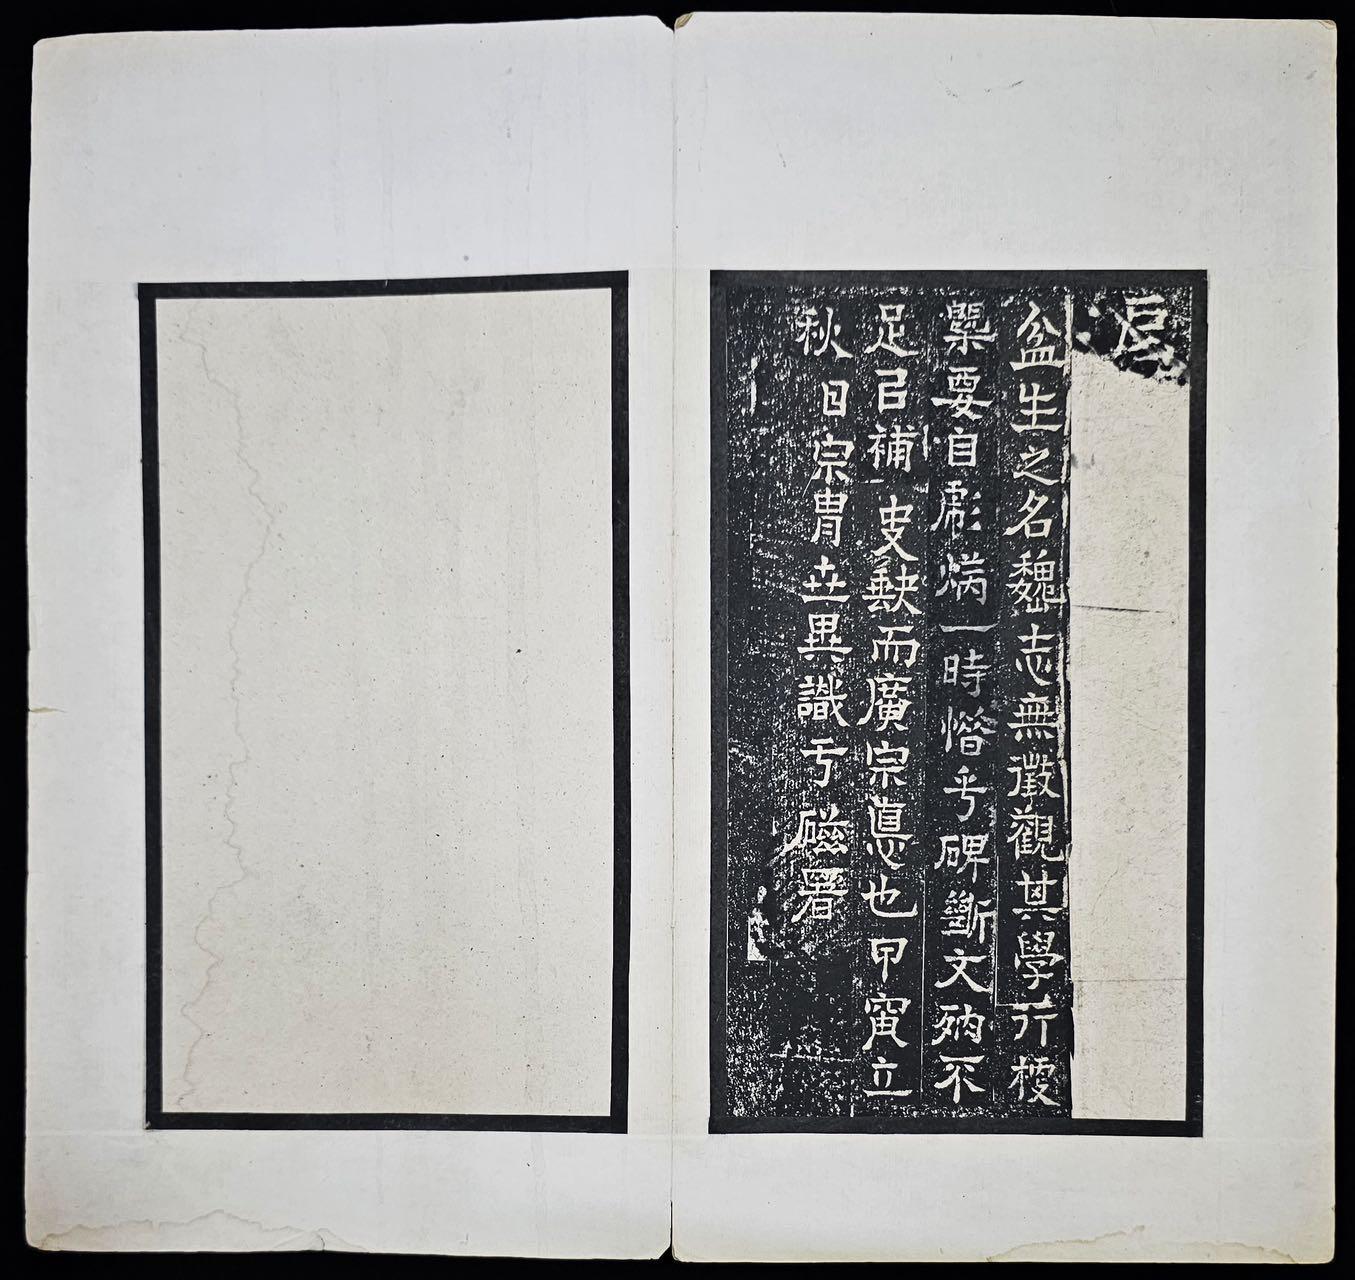 盆生之名巍志無徵觀其學行梗
槩要自彪炳一時惜乎碑斷文不
足㠯補史缺而廣宗悳也甲寅立
秋日宗胄世異識于磁署